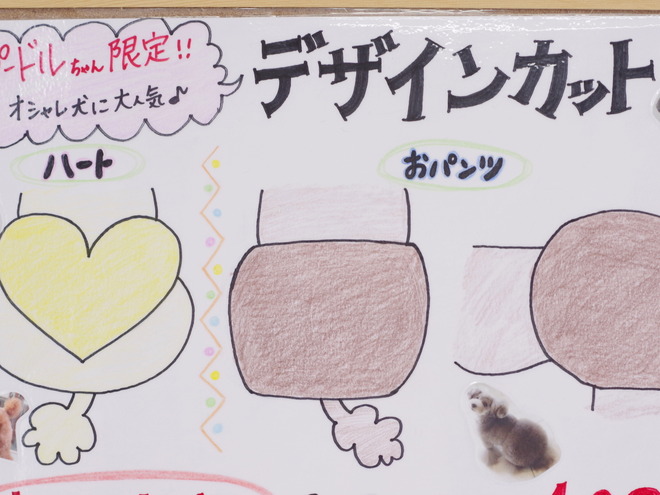 プードルちゃん限定!!
オシャレ犬に大人気♪
デザインカット
ハート
おパンツ